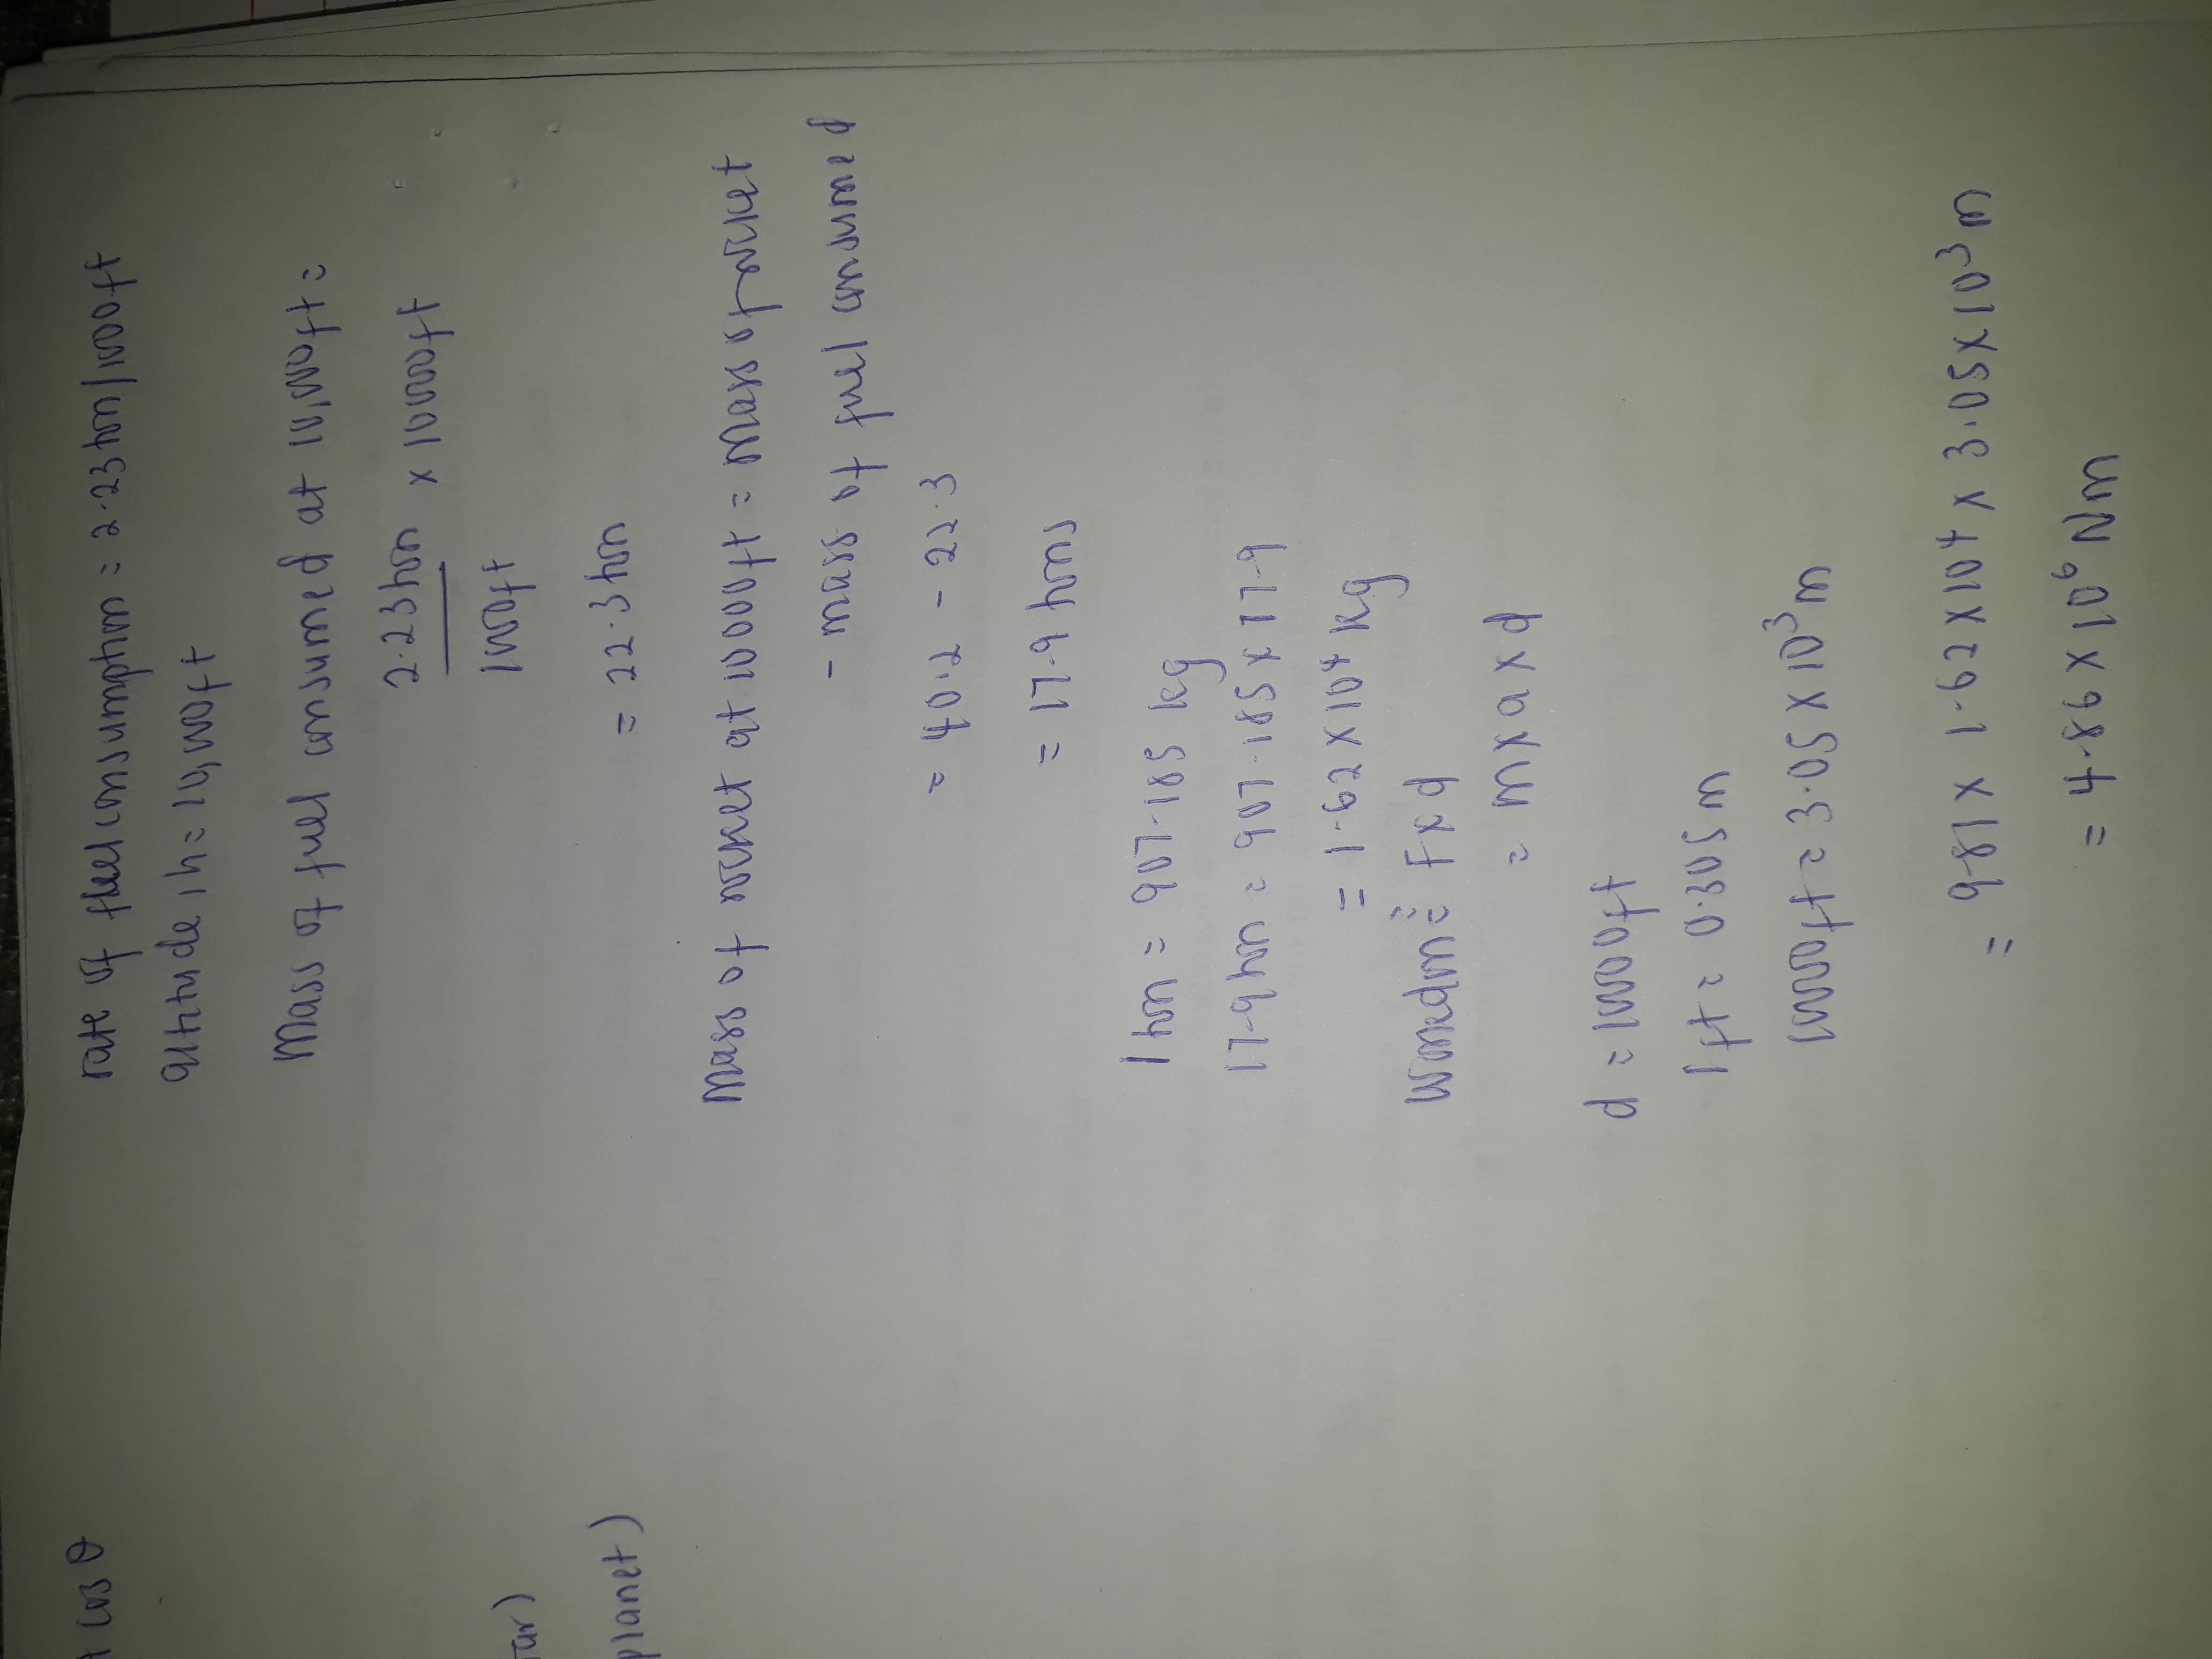 rate of fuel consumption = 2.23 ton/1000ft
altitude, h = 10,000ft
Mass of fuel consumed at 10,000ft =
2.23 ton x 10000ft
1000ft
= 22.3 ton
Mass of rocket at 10000ft = mass of rocket
- mass of fuel consumed
= 40.2 - 22.3
= 17.9 tons
1 ton = 907.185 kg
17.9 ton = 907.185 x 17.9
= 1.62 x 10⁴ kg
Workdone = F x d
= m x a x d
d = 10000ft
1ft = 0.305 m
10000ft = 3.05 x 10³ m
= 9.81 x 1.62 x 10⁴ x 3.05 x 10³ m
= 4.86 x 10⁶ Nm
cos θ
planet)